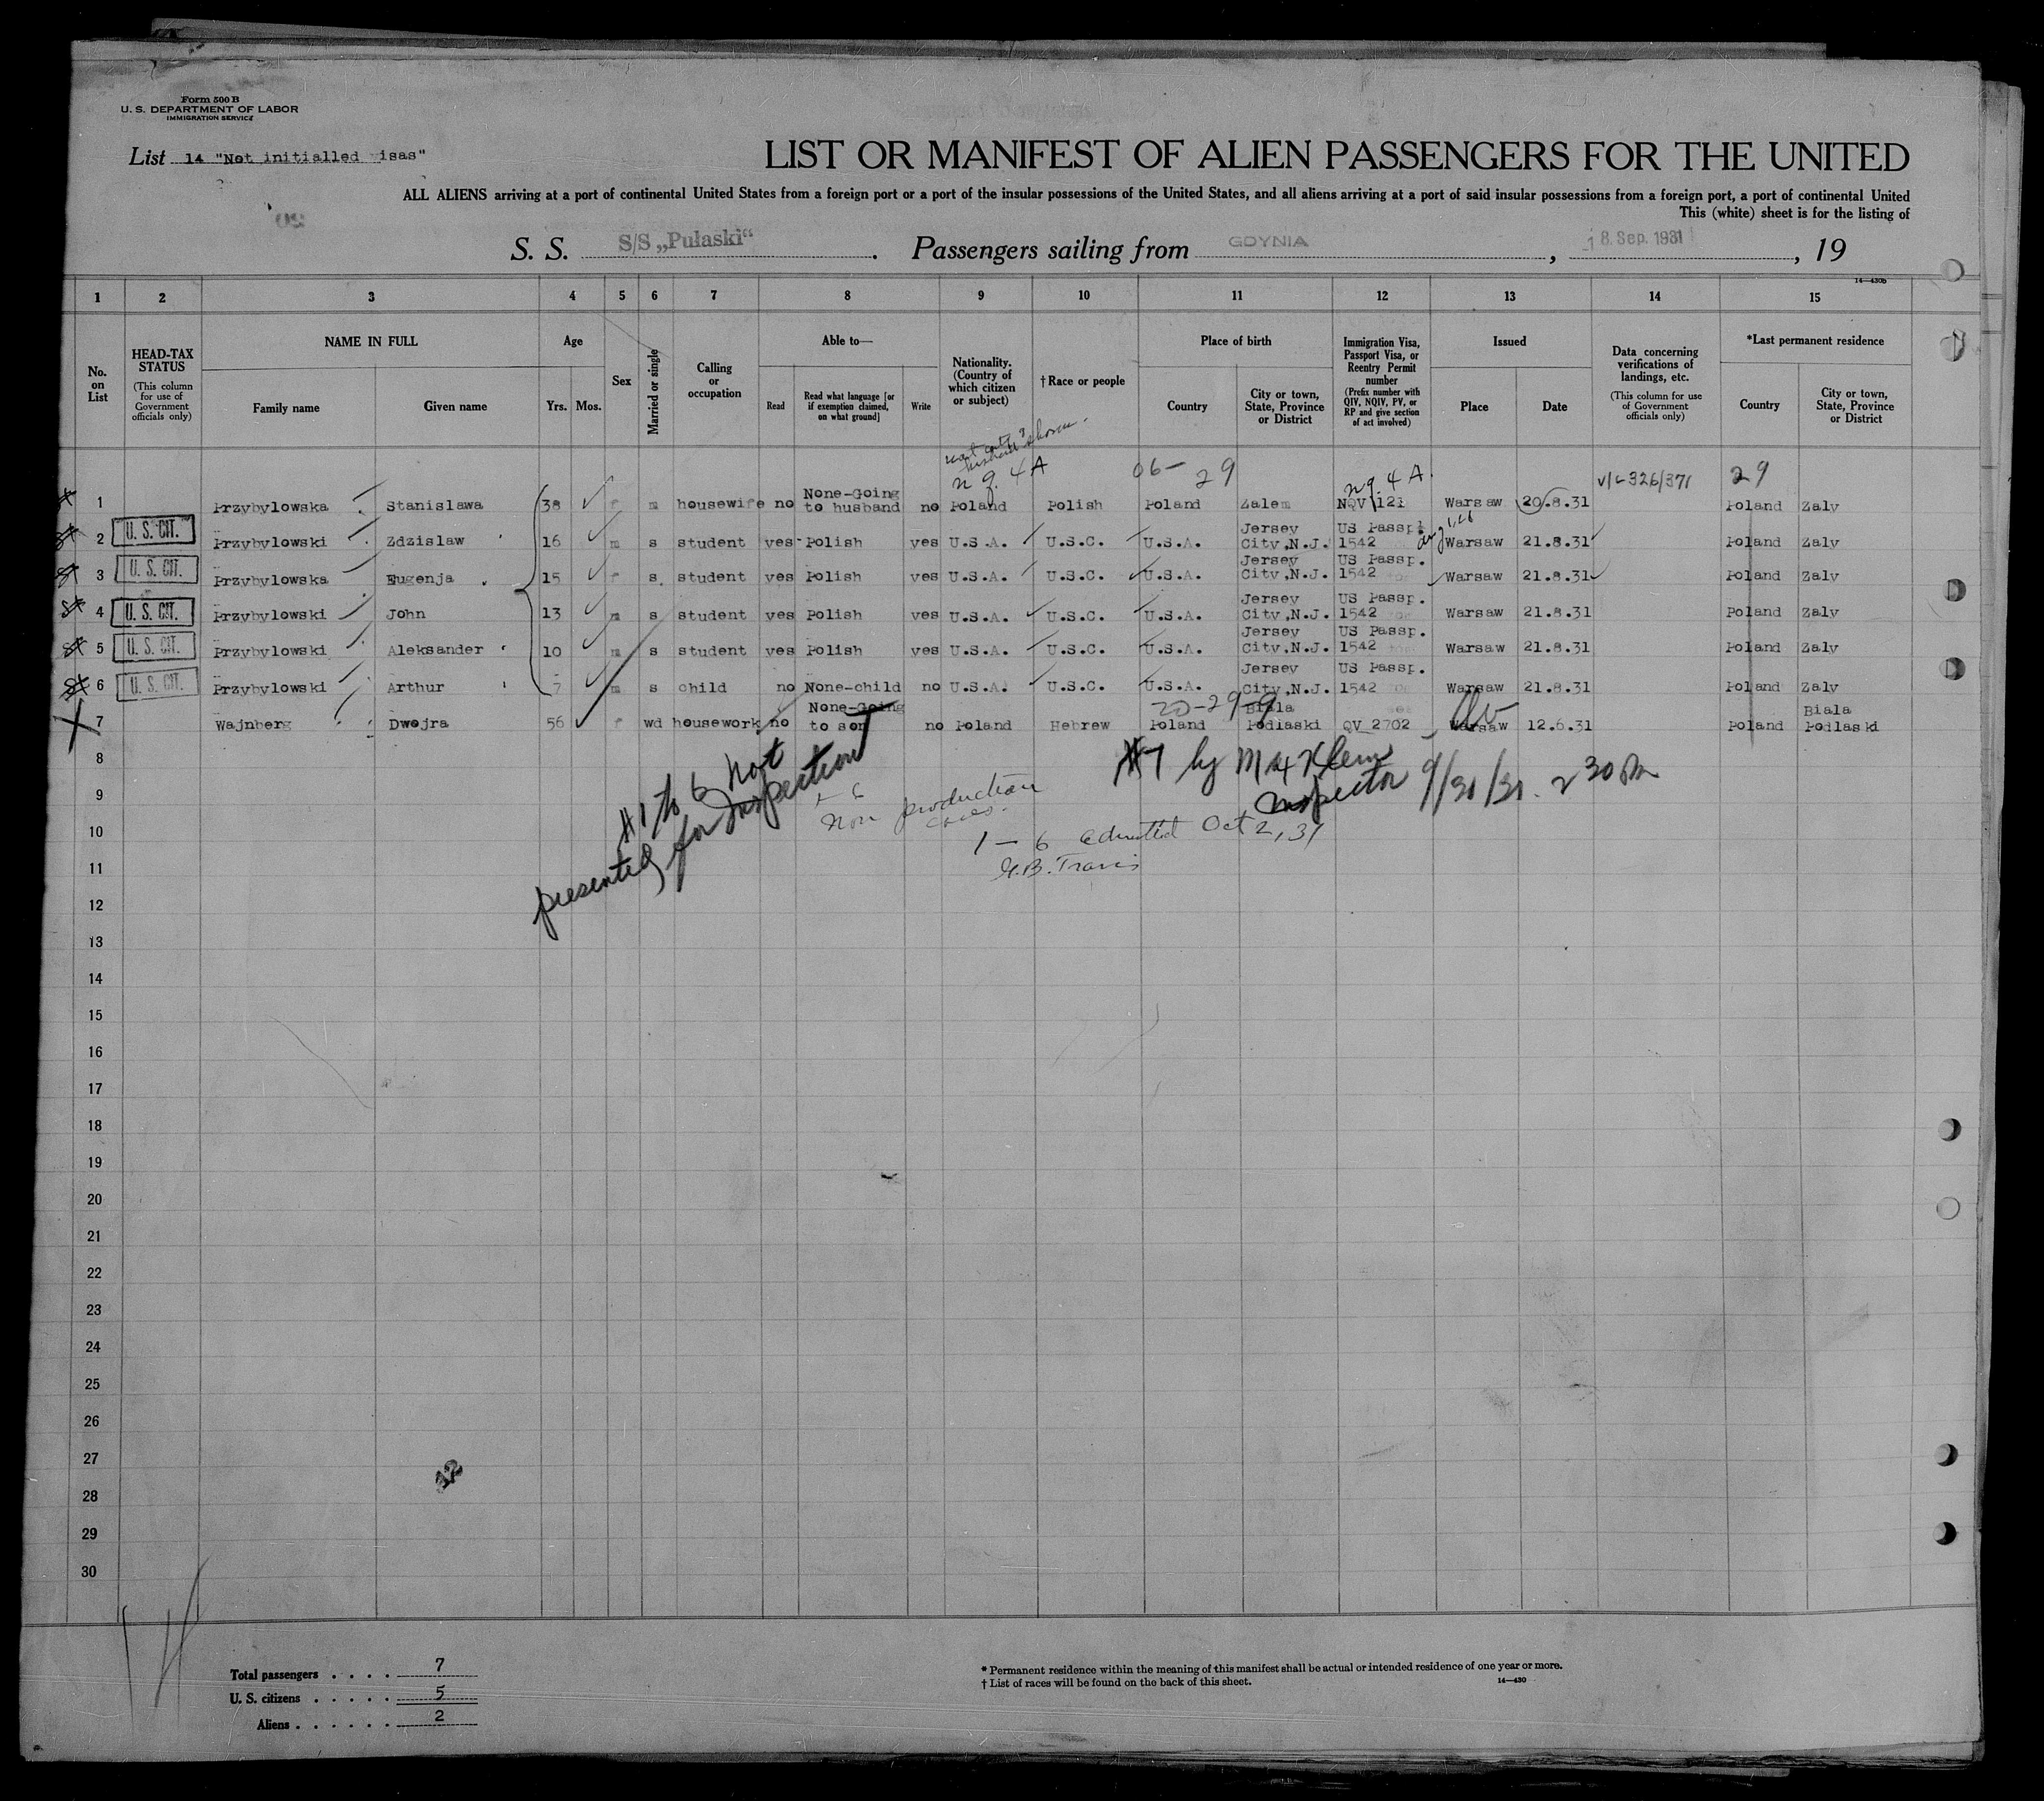 Form 500 B
U. S. DEPARTMENT OF LABOR
IMMIGRATION SERVICE
List 14 "Not initialled isas"
LIST OR MANIFEST OF ALIEN PASSENGERS FOR THE UNITED
ALL ALIENS arriving at a port of continental United States from a foreign port or a port of the insular possessions of the United States, and all aliens arriving at a port of said insular possessions from a foreign port, a port of continental United
This (white) sheet is for the listing of
S. S. S/S „Pułaski“. Passengers sailing from GDYNIA, 18. Sep. 1931, 19
14—430b
1 2 3 4 5 6 7 8 9 10 11 12 13 14 15
No. on List
HEAD-TAX STATUS
(This column for use of Government officials only)
NAME IN FULL
Family name
Given name
Age
Yrs.
Mos.
Sex
Married or single
Calling or occupation
Able to—
Read
Read what language [or if exemption claimed, on what ground]
Write
Nationality. (Country of which citizen or subject)
†Race or people
Place of birth
Country
City or town, State, Province or District
Immigration Visa, Passport Visa, or Reentry Permit number
(Prefix number with QIV, NQIV, PV, or RP and give section of act involved)
Issued
Place
Date
Data concerning verifications of landings, etc.
(This column for use of Government officials only)
*Last permanent residence
Country
City or town, State, Province or District
nq. 4A 06— 29 nq. 4 A. 326/371 29
1 Przybylowska Stanislawa 38 f m housewife no None-Going to husband no Poland Polish Poland Zalem NQV 121 Warsaw 20.8.31 Poland Zaly
2 U. S. CIT. Przybylowski Zdzislaw 16 m s student yes Polish yes U.S.A. U.S.C. U.S.A. Jersey City,N.J. US Passp. 1542 Warsaw 21.8.31 Poland Zaly
3 U. S. CIT. Przybylowska Eugenja 15 f s. student yes Polish yes U.S.A. U.S.C. U.S.A. Jersey City,N.J. US Passp. 1542 Warsaw 21.8.31 Poland Zaly
4 U. S. CIT. Przybylowski John 13 m s student yes Polish yes U.S.A. U.S.C. U.S.A. Jersey City,N.J. US Passp. 1542 Warsaw 21.8.31 Poland Zaly
5 U. S. CIT. Przybylowski Aleksander 10 m s student yes Polish yes U.S.A. U.S.C. U.S.A. Jersey City,N.J. US Passp. 1542 Warsaw 21.8.31 Poland Zaly
6 U. S. CIT. Przybylowski Arthur 7 m s child no None-child no U.S.A. U.S.C. U.S.A. Jersey City,N.J. US Passp. 1542 Warsaw 21.8.31 Poland Zaly
20-29-9
7 Wajnberg Dwojra 56 f wd housework no None-Going to son no Poland Hebrew Poland Biala Podlaski QV 2702 Warsaw 12.6.31 Poland Biala Podlaski
#1 to 6 Not
presented for Inspection
1-6
Non production
cases.
#7 by Max Klein
Inspector 9/30/31. 2 30 PM
1 — 6 admitted Oct 2, 31
G.B. Travis
8
9
10
11
12
13
14
15
16
17
18
19
20
21
22
23
24
25
26
27
28
29
30
14
Total passengers . . . . 7
U. S. citizens . . . . . 5
Aliens . . . . . . 2
* Permanent residence within the meaning of this manifest shall be actual or intended residence of one year or more.
† List of races will be found on the back of this sheet.
14—430